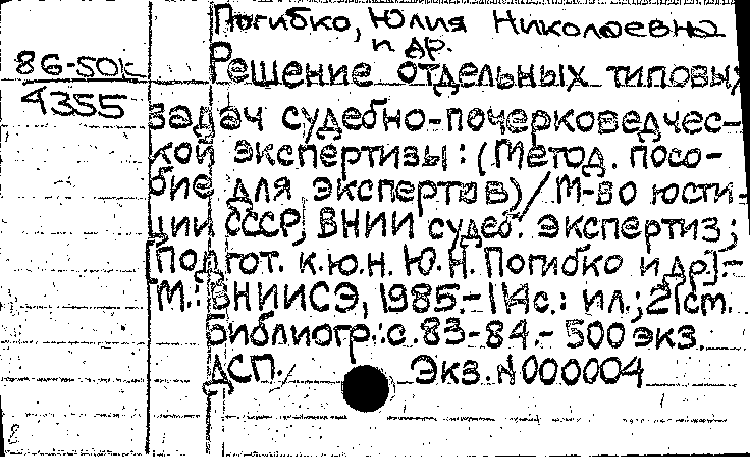 Погибко, Юлия Николаевна
и др.
86-50к
4355
Решение отдельных типовых
задач судебно-почерковедчес-
кой экспертизы: (Метод. посо-
бие для экспертов)/М-во юсти-
ции СССР, ВНИИ судеб. экспертиз;
[Подгот. к.ю.н. Ю.Н. Погибко и др.].-
М.: ВНИИСЭ, 1985.-114с.: ил.; 21см.
библиогр.: с. 83-84.- 500 экз.
ДСП. Экз. N000004